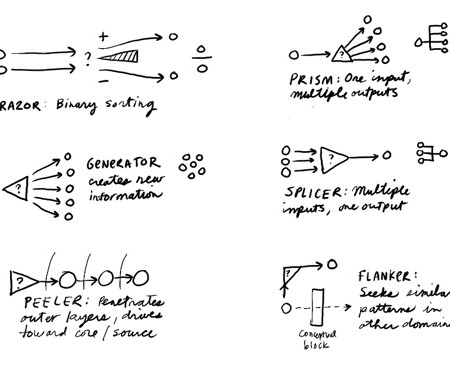 RAZOR: Binary sorting
PRISM: One input,
multiple outputs
GENERATOR
creates new
information
SPLICER: Multiple
inputs, one output
PEELER: Penetrates
outer layers, drives
toward core/source
FLANKER:
Seeks similar
patterns in
other domain
conceptual
block